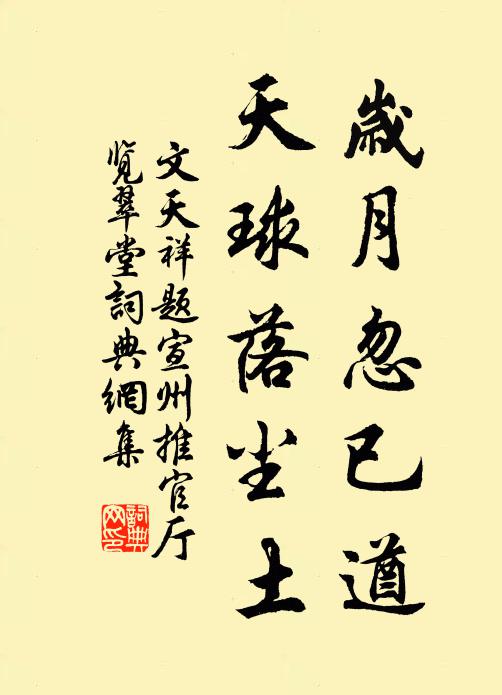 歲月忽已遒
天球落尘土
文天祥题宣州推官厅
览翠堂詞典網集
詞典
网印